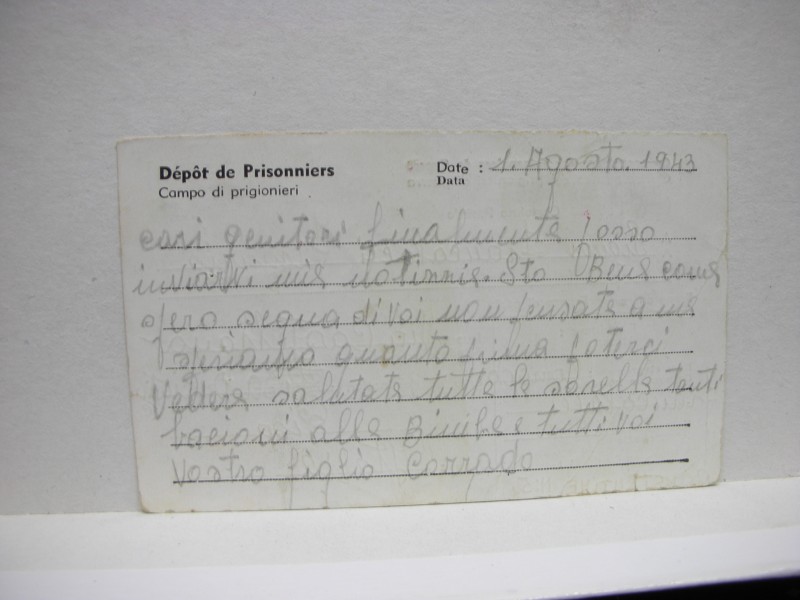 Dépôt de Prisonniers
Campo di prigionieri
Date : 1. Agosto. 1943
Data
cari genitori finalmente posso
inviarvi mie notizzie. Sto Bene come
spero segua di voi non pensate a me
speriamo quanto prima poterci
Vedere salutate tutte le sorelle tanti
bacioni alle Bimbe e tutti voi
Vostro figlio Corrado